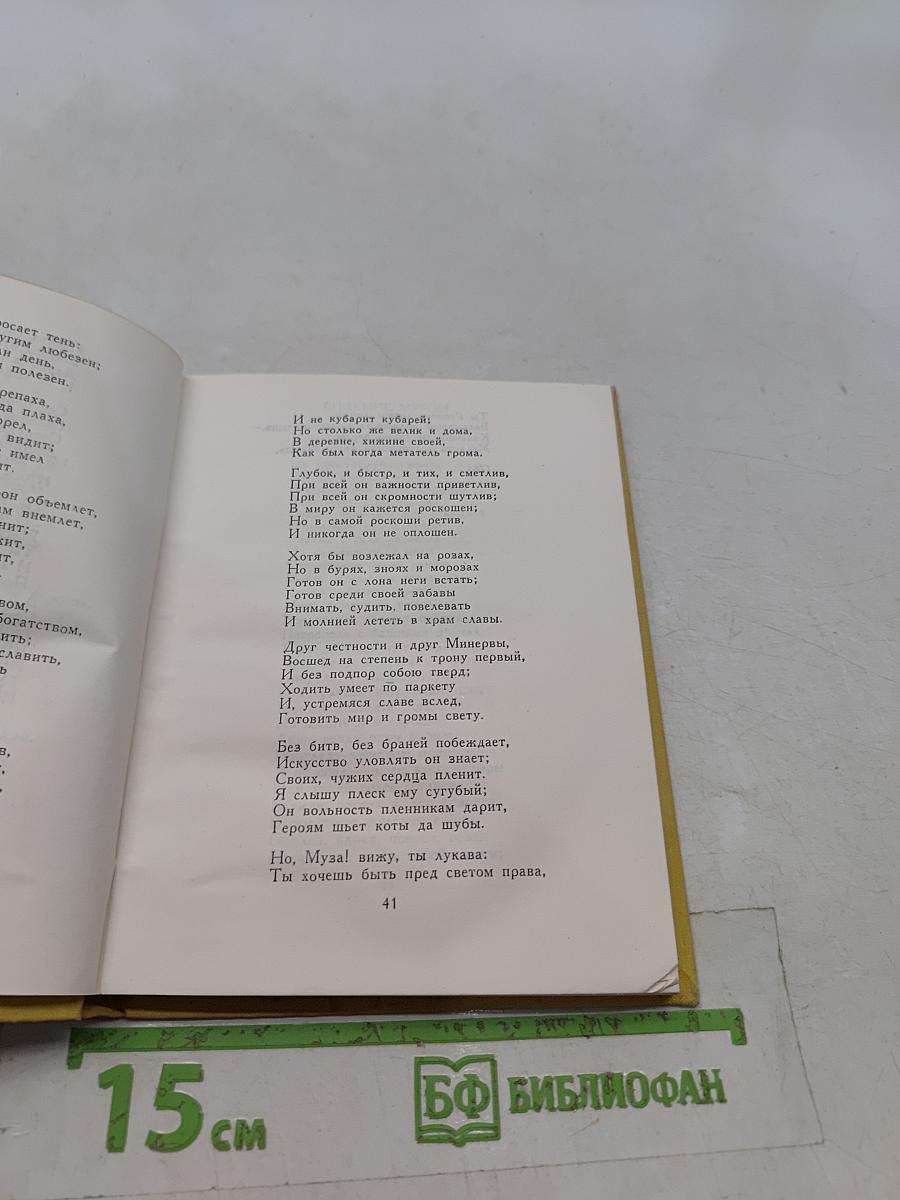 тень:
любезен;
день,
полезен.
плаха,
видит;
имел
объемлет,
внемлет,
богатством,
славить,
И не кубарит кубарей;
Но столько же велик и дома,
В деревне, хижине своей,
Как был когда метатель грома.
Глубок, и быстр, и тих, и сметлив,
При всей он важности приветлив,
При всей он скромности шутлив;
В миру он кажется роскошен;
Но в самой роскоши ретив,
И никогда он не оплошен.
Хотя бы возлежал на розах,
Но в бурях, зноях и морозах
Готов он с лона неги встать;
Готов среди своей забавы
Внимать, судить, повелевать
И молнией лететь в храм славы.
Друг честности и друг Минервы,
Восшед на степень к трону первый,
И без подпор собою тверд;
Ходить умеет по паркету
И, устремяся славе вслед,
Готовить мир и громы свету.
Без битв, без браней побеждает,
Искусство уловлять он знает;
Своих, чужих сердца пленит.
Я слышу плеск ему сугубый;
Он вольность пленникам дарит,
Героям шьет коты да шубы.
Но, Муза! вижу, ты лукава:
Ты хочешь быть пред светом права,
41
15 см
БФ БИБЛИОФАН